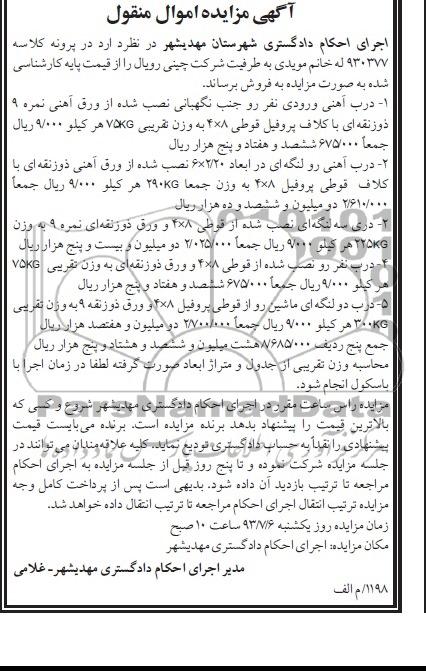 آگهی مزایده اموال منقول
اجرای احکام دادگستری شهرستان مهدیشهر در نظرد ارد در پرونه کلاسه
۹۳۰۳۷۷ له خانم مویدی به طرفیت شرکت چینی رویال را از قیمت پایه کارشناسی
شده به صورت مزایده به فروش برساند.
۱- درب آهنی ورودی نفر رو جنب نگهبانی نصب شده از ورق آهنی نمره ۹
ذوزنقه‌ای با کلاف پروفیل قوطی ۸×۴ به وزن تقریبی ۷۵KG هر کیلو ۹/۰۰۰ ریال
جمعاً ۶۷۵/۰۰۰ ششصد و هفتاد و پنج هزار ریال
۲- درب آهنی رو لنگه‌ای در ابعاد ۲/۲۰×۶ نصب شده از ورق آهنی ذوزنقه‌ای با
کلاف قوطی پروفیل ۸×۴ به وزن جمعا ۲۹۰KG هر کیلو ۹/۰۰۰ ریال جمعاً
۲/۶۱۰/۰۰۰ دو میلیون و ششصد و ده هزار ریال
۲- دری سه لنگه‌ای نصب شده از قوطی ۸×۴ و ورق ذوزنقه‌ای نمره ۹ به وزن
۲۲۵KG هر کیلو ۹/۰۰۰ ریال جمعاً ۲/۰۲۵/۰۰۰ دو میلیون و بیست و پنج هزار ریال
۴- درب نفر رو نصب شده از قوطی ۸×۴ و ورق ذوزنقه‌ای به وزن تقریبی ۷۵KG
هر کیلو ۹/۰۰۰ ریال جمعاً ۶۷۵/۰۰۰ ششصد و هفتاد و پنج هزار ریال
۵- درب دو لنگه‌ای ماشین رو از قوطی پروفیل ۸×۴ و ورق ذوزنقه ۹ به وزن تقریبی
۳۰۰KG هر کیلو ۹/۰۰۰ ریال جمعاً ۲/۷۰۰/۰۰۰ دو میلیون و هفتصد هزار ریال
جمع پنج ردیف ۸/۶۸۵/۰۰۰ هشت میلیون و ششصد و هشتاد و پنج هزار ریال
محاسبه وزن تقریبی از جدول و متراژ ابعاد صورت گرفته لطفا در زمان اجرا با
باسکول انجام شود.
مزایده راس ساعت مقرر در اجرای احکام دادگستری مهدیشهر شروع و کسی که
بالاترین قیمت را پیشنهاد بدهد برنده مزایده است. برنده می‌بایست قیمت
پیشنهادی را نقداً به حساب دادگستری تودیع نماید. کلیه علاقه‌مندان می‌توانند در
جلسه مزایده شرکت نموده و تا پنج روز قبل از جلسه مزایده به اجرای احکام
مراجعه تا ترتیب بازدید آن داده شود. بدیهی است پس از پرداخت کامل وجه
مزایده ترتیب انتقال اجرای احکام مراجعه تا ترتیب انتقال داده خواهد شد.
زمان مزایده روز یکشنبه ۹۳/۷/۶ ساعت ۱۰ صبح
مکان مزایده: اجرای احکام دادگستری مهدیشهر
مدیر اجرای احکام دادگستری مهدیشهر- غلامی
۱۱۹۸/م الف